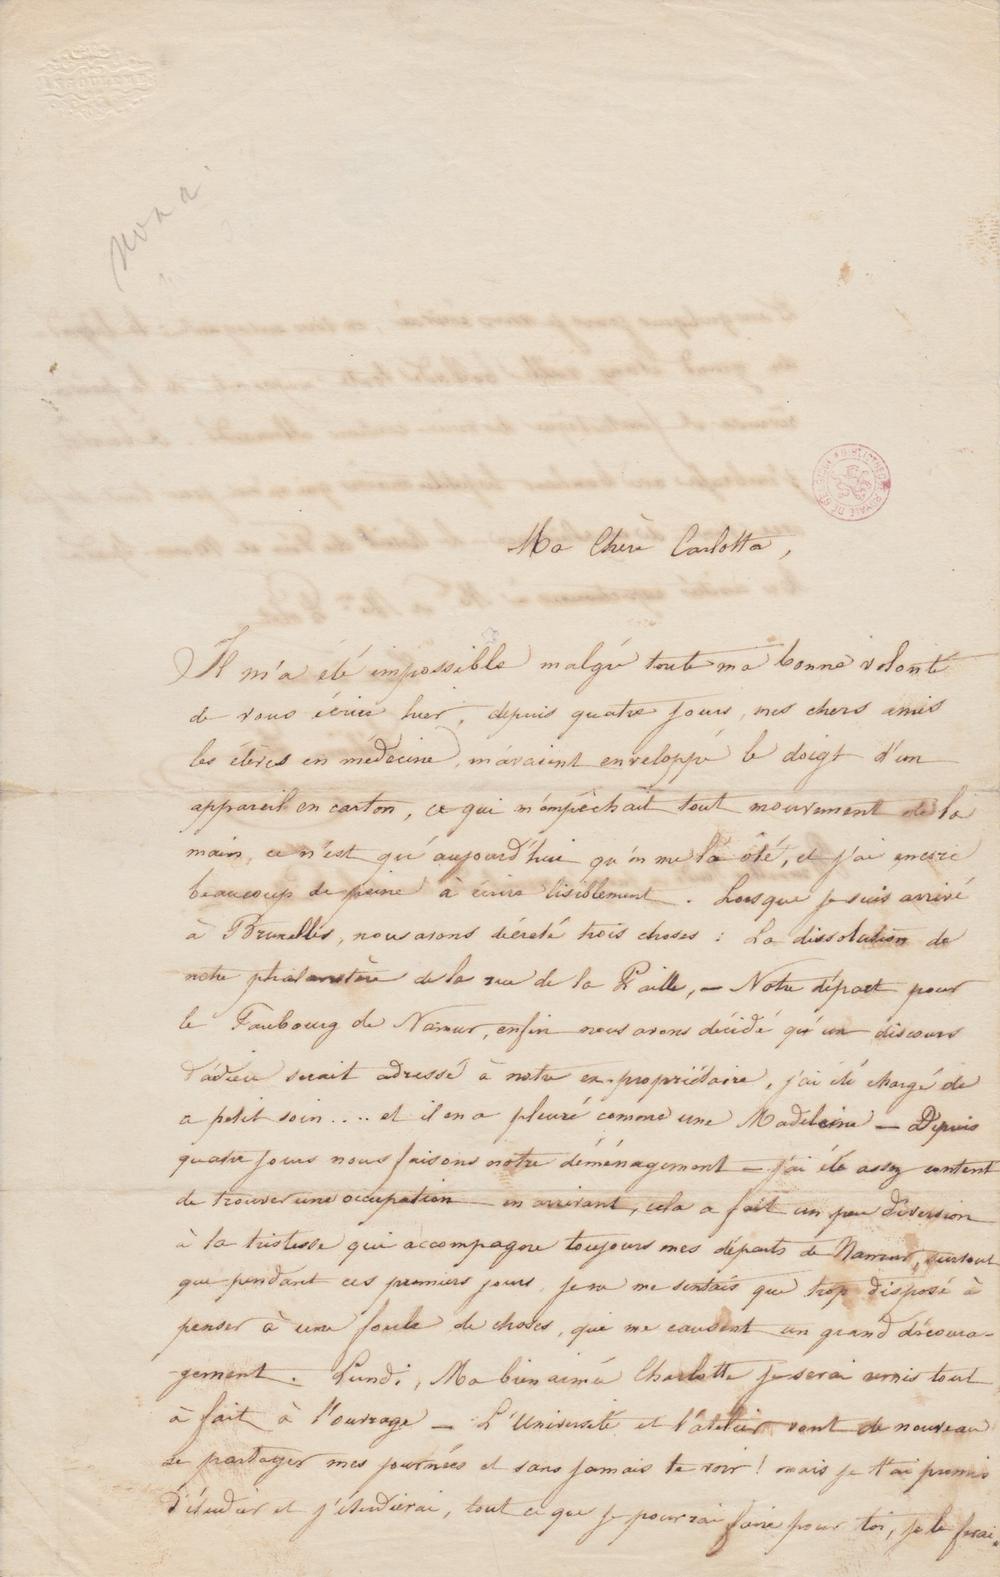 Ma Chère Carlotta,
Il m'a été impossible malgré toute ma bonne volonté
de vous écrire hier, depuis quatre jours, mes chers amis
les élèves en médecine, m'avaient enveloppé le doigt d'un
appareil en carton, ce qui m'empêchait tout mouvement de la
main, ce n'est qu'aujourd'hui qu'on me l'a ôté, et j'ai encore
beaucoup de peine à écrire lisiblement. Lorsque je suis arrivé
à Bruxelles, nous avons décrété trois choses : La dissolution de
notre phalanstère de la rue de la Paille, — Notre départ pour
le Faubourg de Namur, enfin nous avons décidé qu'un discours
d'adieu serait adressé à notre ex-propriétaire, j'ai été chargé de
a petit soin.... et il en a pleuré comme une Madeleine — Depuis
quatre jours nous faisons notre déménagement — j'ai été assez content
de trouver une occupation en arrivant, cela a fait un peu diversion
à la tristesse qui accompagne toujours mes départs de Namur, surtout
que pendant ces premiers jours, je ne me sentais que trop disposé à
penser à une foule de choses, qui me causent un grand découra-
-gement. Lundi, Ma bien aimée Charlotte je serai remis tout
à fait à l'ouvrage — L'Université et l'atelier vont de nouveau
se partager mes journées et sans jamais te voir ! mais je t'ai promis
d'étudier et j'étudierai, tout ce que je pourrai faire pour toi, je le ferai.